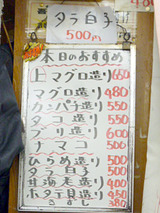 タラ白子
500円
本日のおすすめ
上マグロ造り 650
マグロ造り 480
カンパチ造り 550
タコ造り 550
ブリ造り 600
ナマコ 500
ひらめ造り 500
タラ白子 500
甘海老造り 400
ホタテ貝造り 450
380